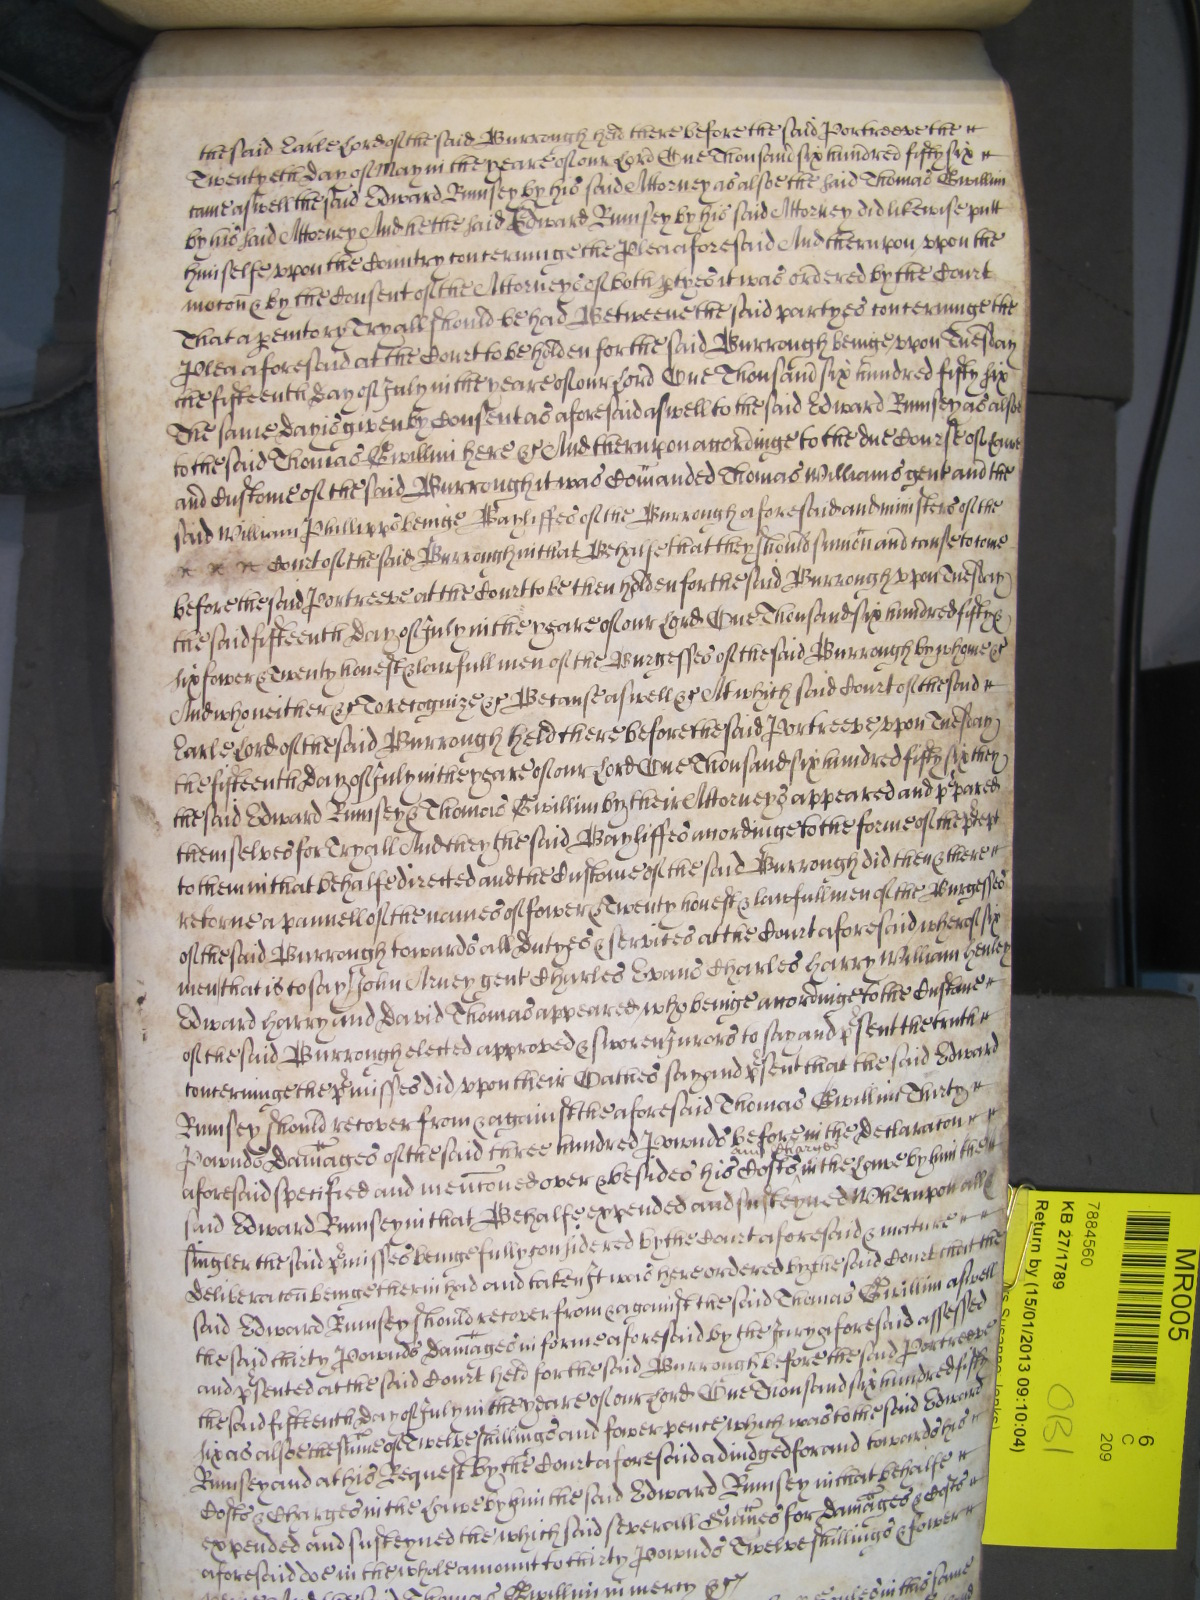 the said Earle Lord of the said Burrough held there before the said Portreeve the
Twentyeth Day of May in the yeare of our Lord One Thousand six hundred fifty six
came aswell the said Edward Rumsey by his said Attorney as alsoe the said Thomas Gwillim
by his said Attorney And he the said Edward Rumsey by his said Attorney did likewise putt
himselfe vpon the Country concerninge the Plea aforesaid And therupon vpon the
mocon & by the Consent of the Attorneys of both ptyes it was ordered by the Court
That a pemtory Tryall should be had Betweene the said partyes concerninge the
Plea aforesaid at the Court to be holden for the said Burrough beinge vpon Tuesday
the fifteenth Day of July in the yeare of our Lord One Thousand six hundred fifty six
The same Day is given by Consent as aforesaid aswell to the said Edward Rumsey as alsoe
to the said Thomas Gwillim here &c And therupon accordinge to the due Course of Lawe
and Custome of the said Burrough it was Comanded Thomas Williams gent and the
said William Phillipps beinge Bayliffes of the Burrough aforesaid and ministers of the
Court of the said Burrough in that Behalfe that they should sumon and cause to come
before the said Portreeve at the Court to be then holden for the said Burrough vpon Tuesday
the said fifteenth Day of July in the yeare of our Lord One Thousand six hundred fifty &
six fower & Twenty honest & lawfull men of the Burgesses of the said Burrough by whome &c
And who neither &c To recognize &c Because aswell &c At which said Court of the said
Earle Lord of the said Burrough held there before the said Portreeve vpon Tuesday
the fifteenth Day of July in the yeare of our Lord One Thousand six hundred fifty six they
the said Edward Rumsey & Thomas Gwillim by their Attorneys appeared and ppared
themselves for Tryall And they the said Bayliffes accordinge to the forme of the pcept
to them in that behalfe directed and the Custome of the said Burrough did then & there
retorne a pannell of the names of fower & Twenty honest & lawfull men of the Burgesses
of the said Burrough towards all Dutyes & services at the Court aforesaid wherof six
men that is to say John Arney gent Charles Evans Charles Harry William Henley
Edward Harry and David Thomas appeared who beinge accordinge to the Custome
of the said Burrough elected approved & sworen Jurors to say and psent the truth
concerninge the pmisses did vpon their Oathes say and psent that the said Edward
Rumsey should recover from & against the aforesaid Thomas Gwillim Thirty
Pownds Damages of the said three hundred Pownds before in the Declaracon
aforesaid specified and menconed over & besides his Costs and Charges in the Lawe by him the
said Edward Rumsey in that Behalfe expended and susteyned Wherupon all &
singler the said pmisses beinge fully considered by the Court aforesaid & mature
deliberacon beinge therin had and taken It was here ordered by the said Court that the
said Edward Rumsey should recover from & against the said Thomas Gwillim aswell
the said thirty Pownds Damages in forme aforesaid by the Jury aforesaid assessed
and psented at the said Court held for the said Burrough before the said Portreeve
the said fifteenth Day of July in the yeare of our Lord One Thousand six hundred fifty
six as alsoe the sume of Twelve shillings and fower pence which was to the said Edward
Rumsey and at his Request by the Court aforesaid adiudged for and towards his
Costs & Charges in the Lawe by him the said Edward Rumsey in that behalfe
expended and susteyned the which said severall Sumes for Damages & Costs
aforesaid doe in the whole amount to thirty Pownds Twelve shillings & fower
Thomas Gwillim in mercy &c
in this same
MR005
6
C
209
7884560
KB 27/1789
Return by (15/01/2013 09:10:04)
OBI